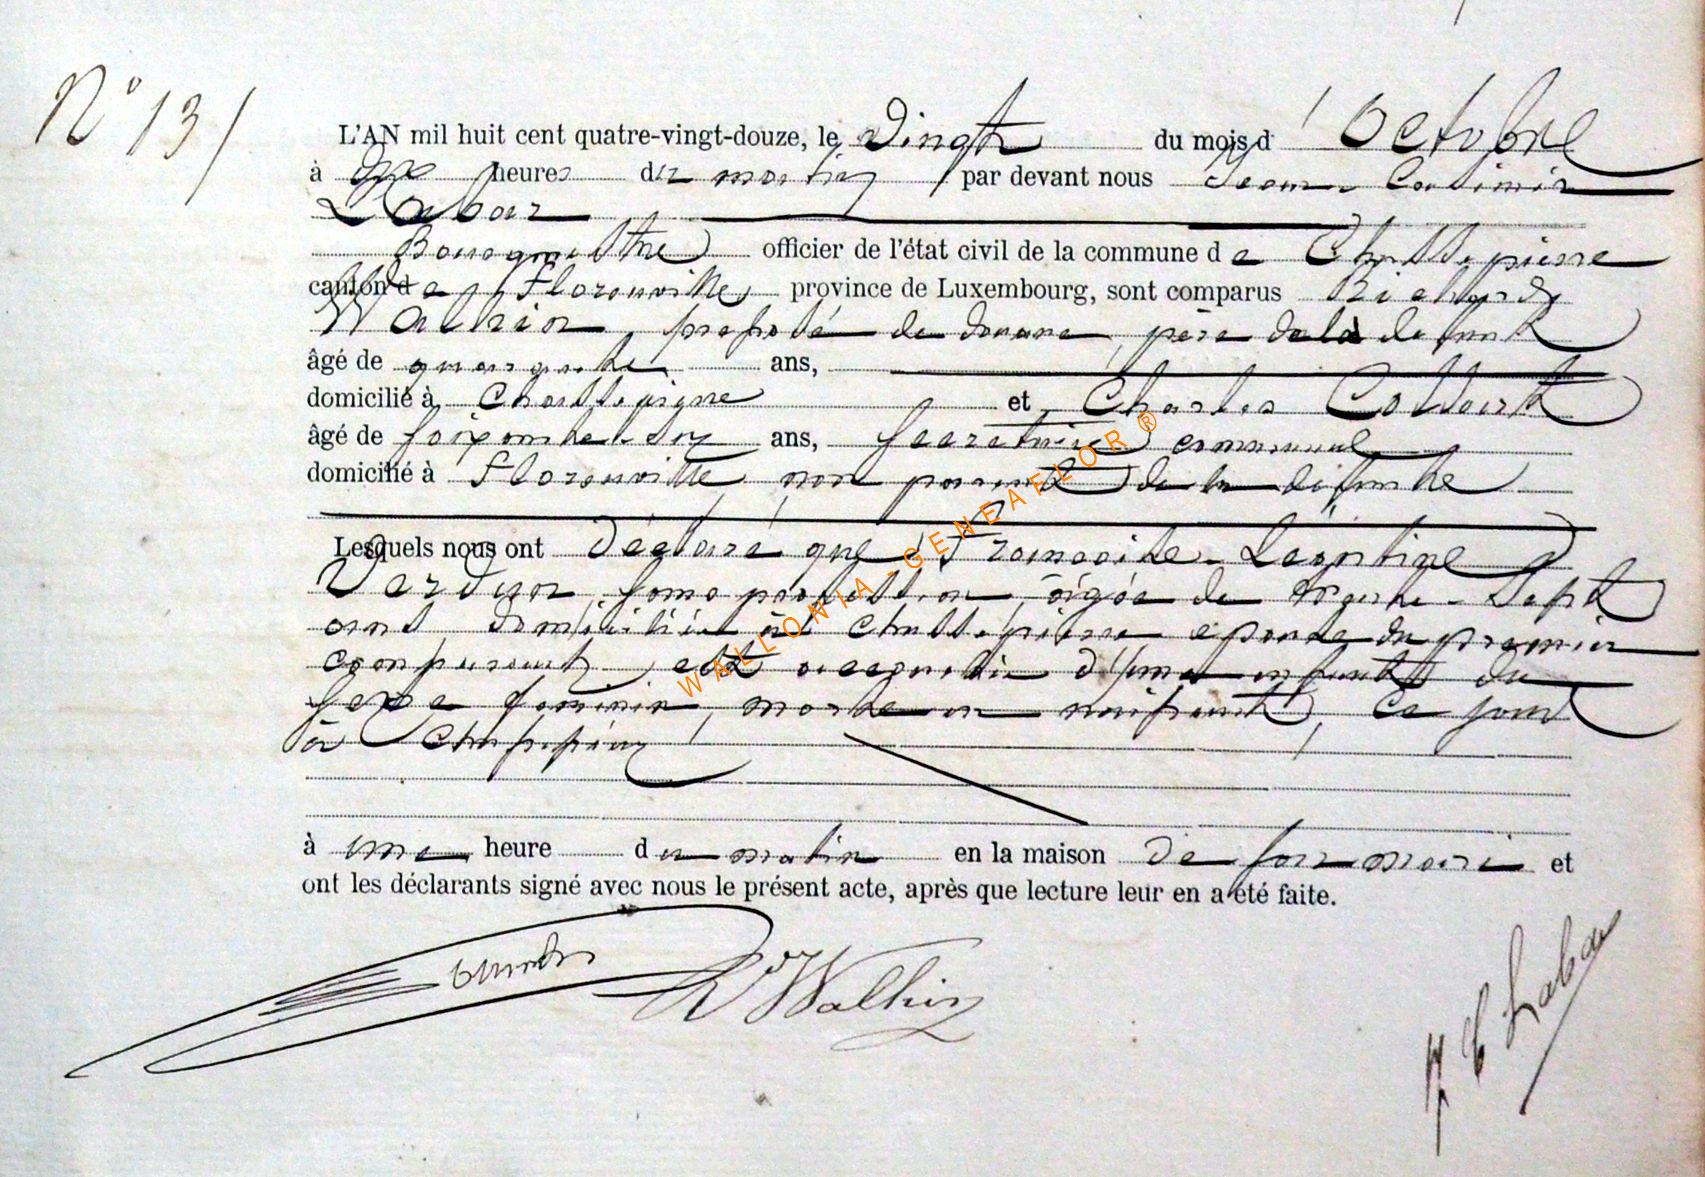 N° 13
L'AN mil huit cent quatre-vingt-douze, le Vingt du mois d' Octobre
à heures du matin par devant nous Jean Casimir
Labar
Bourgmestre officier de l'état civil de la commune de Chassepierre
canton de Florenville province de Luxembourg, sont comparus Richard
préposé de douane, père de la défunte
âgé de quarante ans,
domicilié à Chassepierre et Charles Collart
âgé de soixante-six ans, secrétaire communal
domicilié à Florenville, non parent de la défunte
Lesquels nous ont déclaré que Françoise Léontine
sans profession, âgée de trente-sept
ans, domiciliée à Chassepierre épouse du premier
comparant, est accouchée d'une enfant du
sexe féminin, morte en naissant, ce jour
à Chassepierre
à une heure du matin en la maison de son mari et
ont les déclarants signé avec nous le présent acte, après que lecture leur en a été faite.
Labar
WALLONIA-GENEAFLOR®